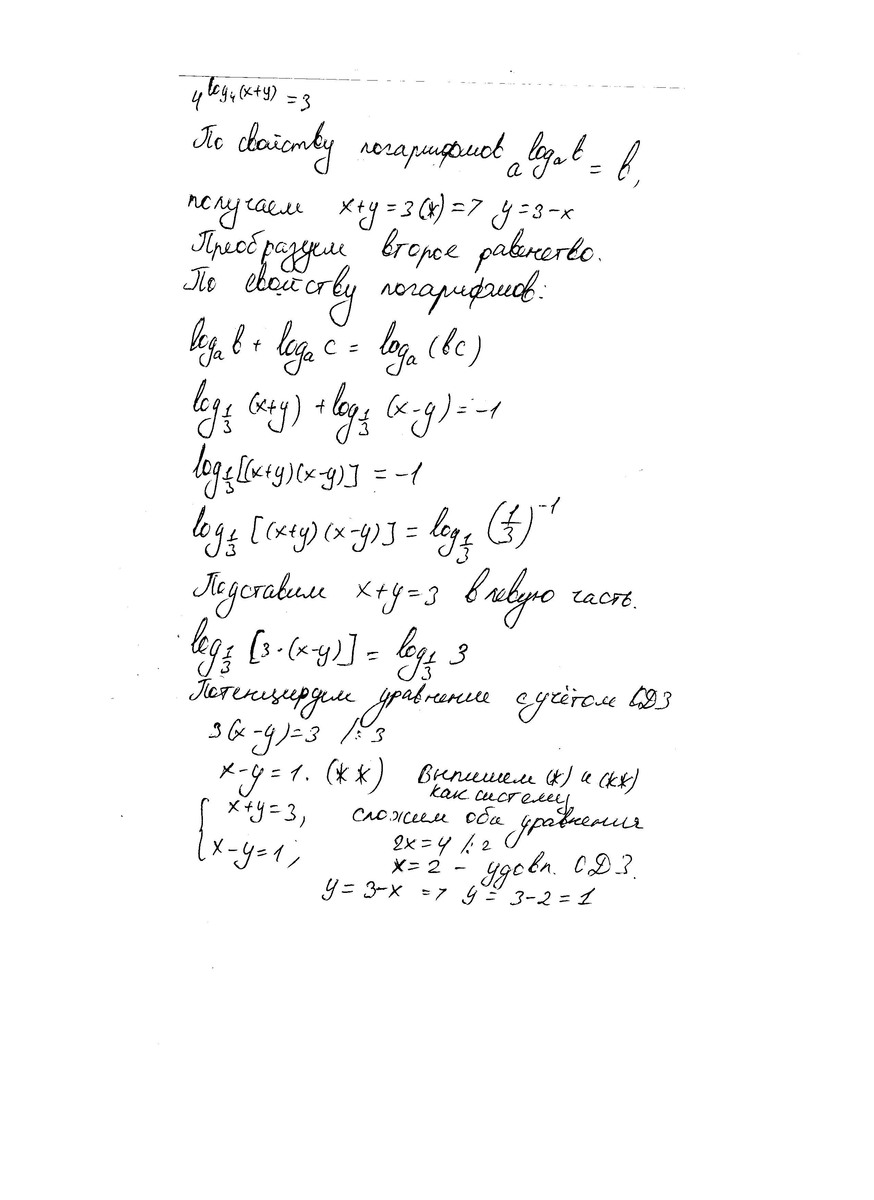 4^log₄(x+y) = 3
По свойству логарифмов a^logₐb = b,
получаем x+y=3(*)=> y=3-x
Преобразуем второе равенство.
По свойству логарифмов:
logₐ b + logₐ c = logₐ (bc)
log_1/3 (x+y) + log_1/3 (x-y) = -1
log_1/3 [(x+y)(x-y)] = -1
log_1/3 [(x+y)(x-y)] = log_1/3 (1/3)^-1
Подставим x+y=3 в левую часть.
log_1/3 [3·(x-y)] = log_1/3 3
Потенцируем уравнение с учётом ОДЗ
3(x-y)=3 /:3
x-y=1. (**) Выпишем (*) и (**)
как систему
{ x+y=3, сложим оба уравнения
x-y=1; 2x=4 /:2
x=2 - удовл. ОДЗ.
y=3-x => y= 3-2=1